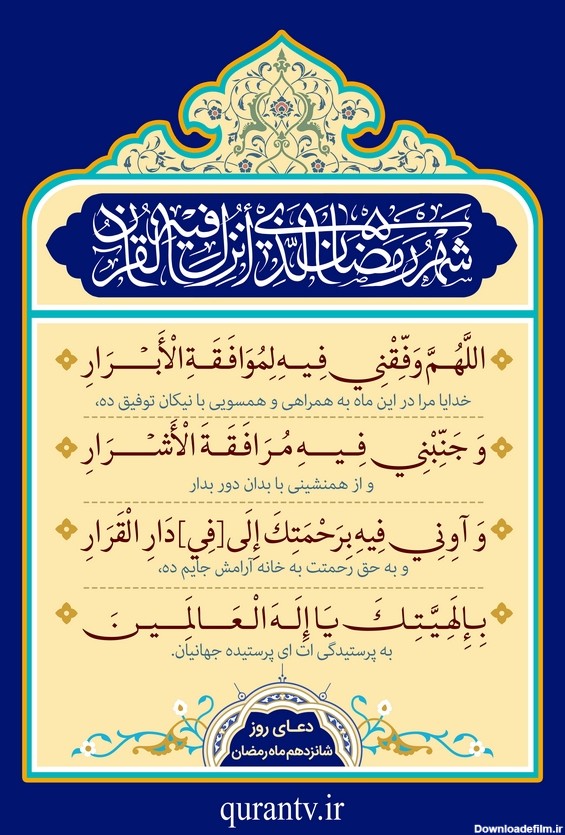 شهر رمضان الذی أنزل فیه القرآن
اللَّهُمَّ وَفِّقْنِي فِيهِ لِمُوَافَقَةِ الْأَبْرَارِ
خدایا مرا در این ماه به همراهی و همسویی با نیکان توفیق ده،
وَ جَنِّبْنِي فِيهِ مُرَافَقَةَ الْأَشْرَارِ
و از همنشینی با بدان دور بدار
وَ آوِنِي فِيهِ بِرَحْمَتِكَ إِلَى [فِي] دَارِ الْقَرَارِ
و به حق رحمتت به خانه آرامش جایم ده،
بِإِلَهِيَّتِكَ يَا إِلَهَ الْعَالَمِينَ
به پرستیدگی ات ای پرستیده جهانیان.
دعای روز
شانزدهم ماه رمضان
qurantv.ir
Downloadefilm.ir